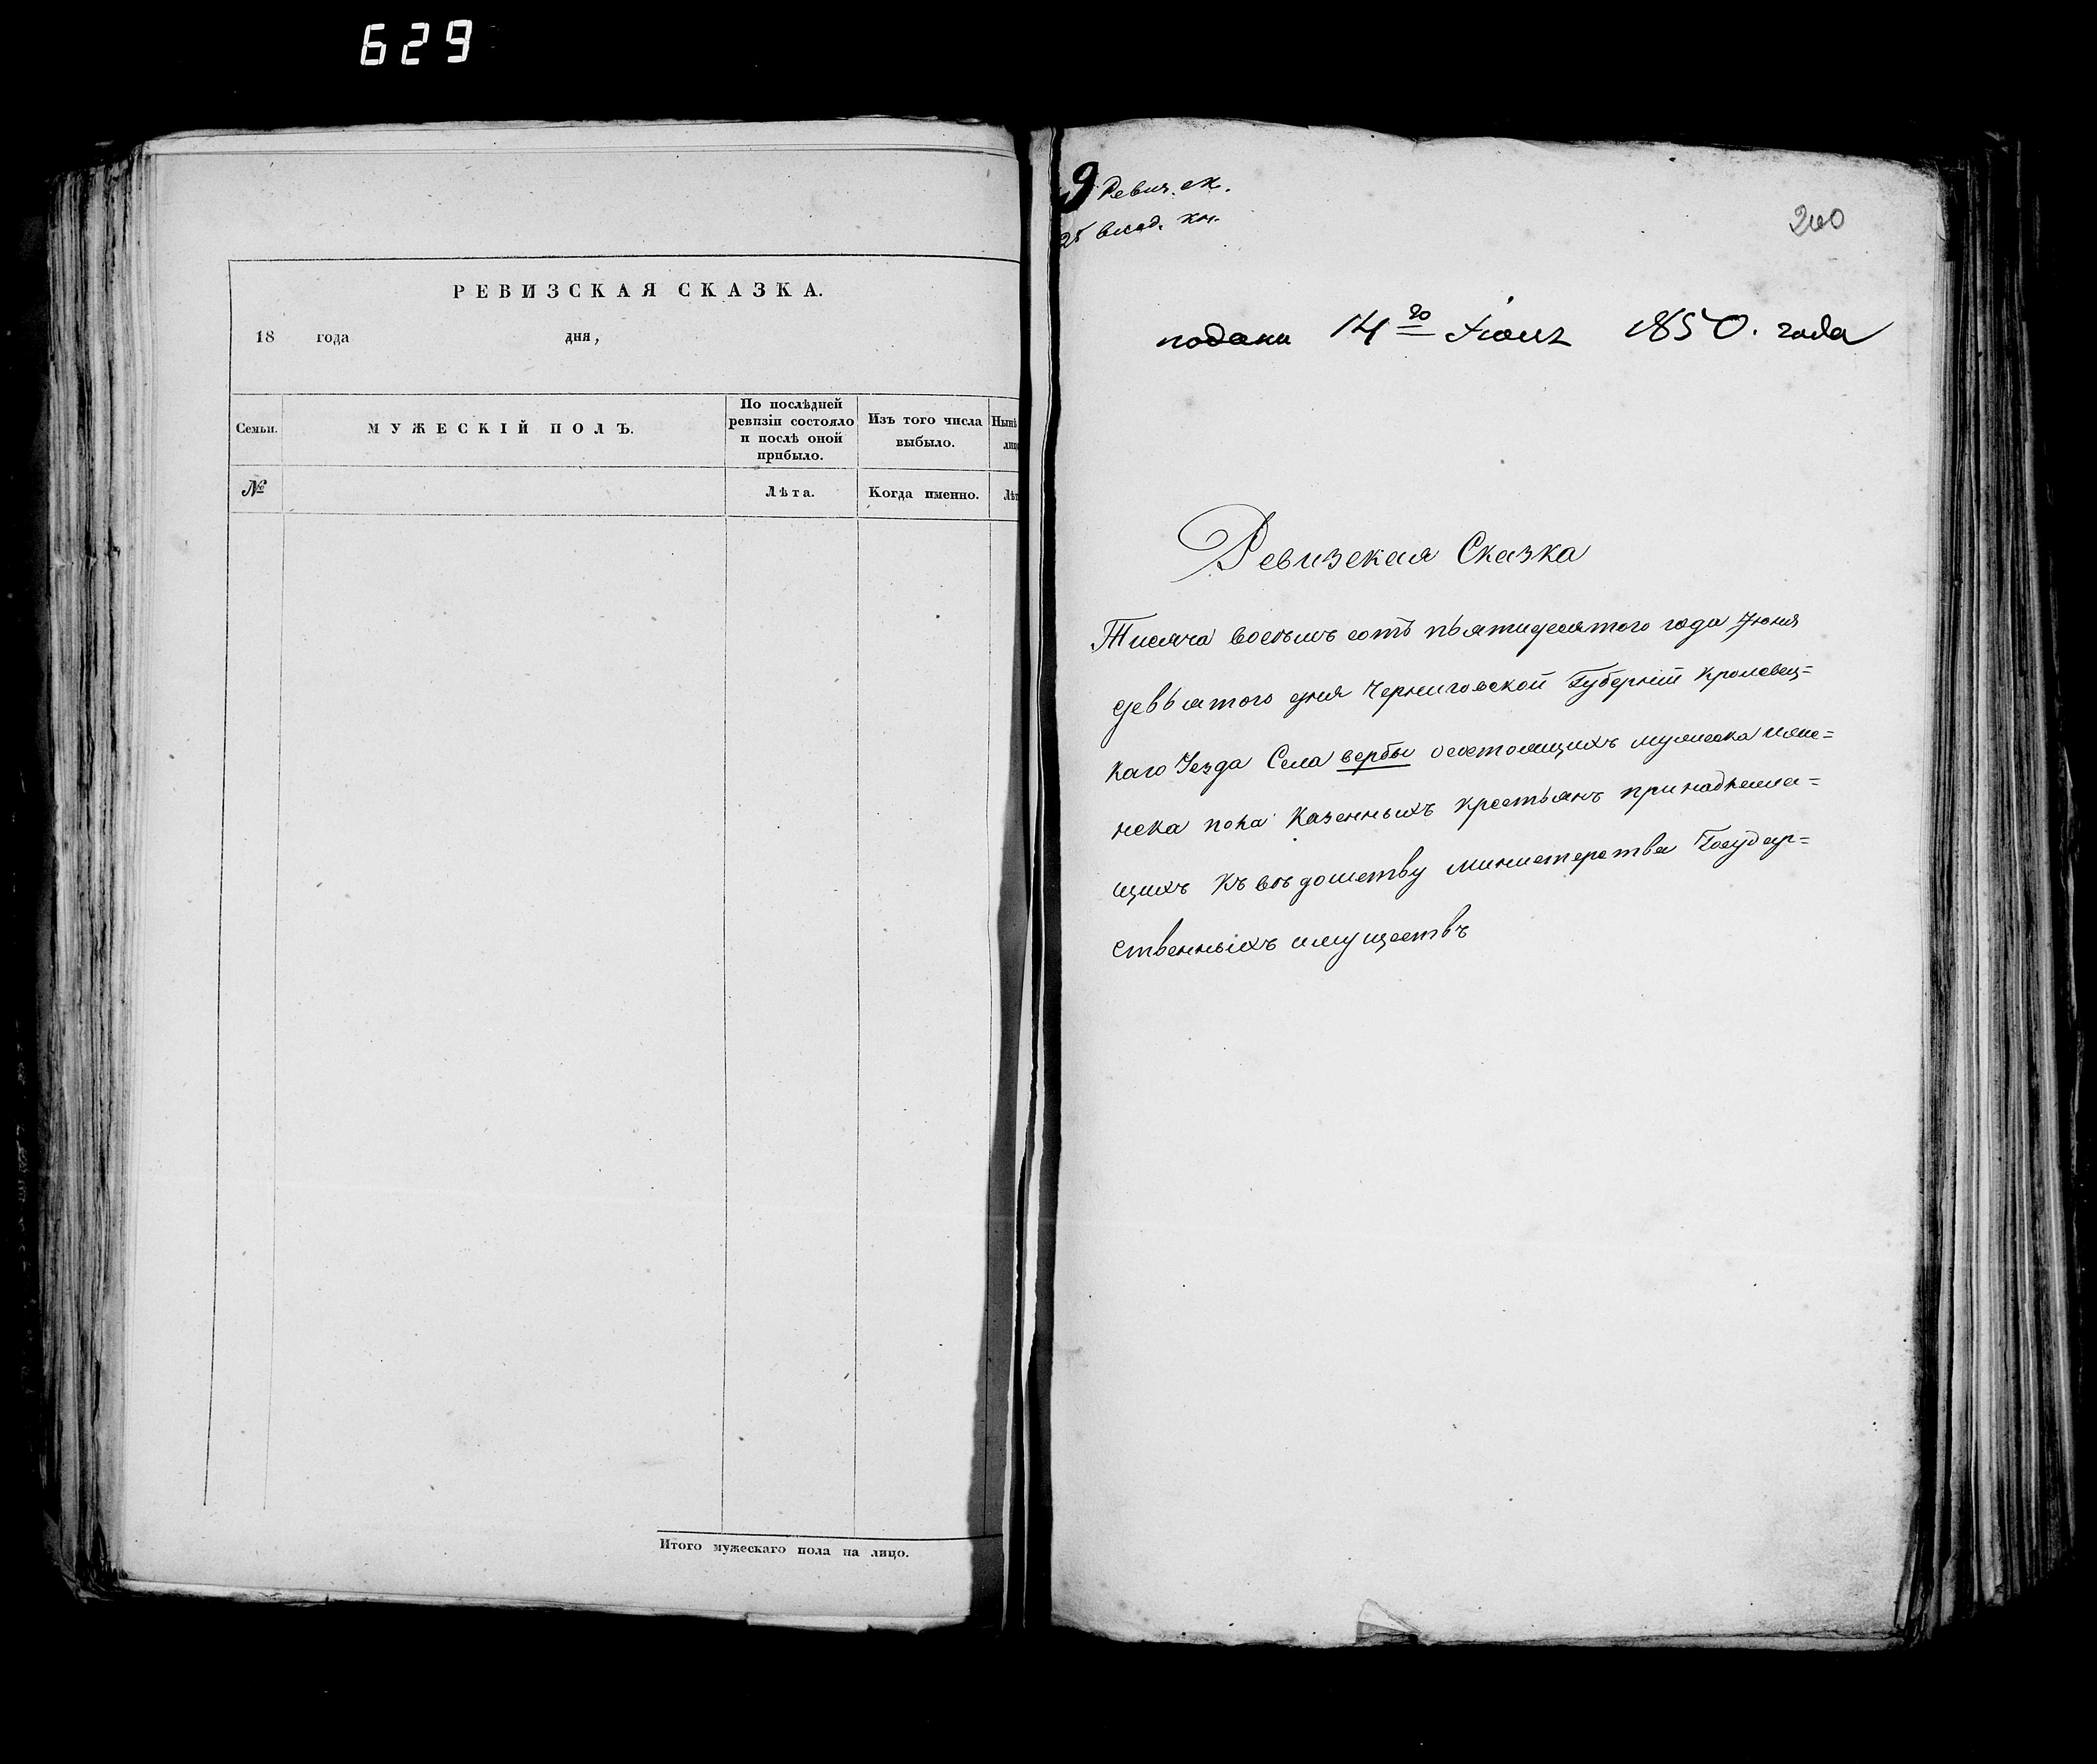 629
РЕВИЗСКАЯ СКАЗКА.
18 года дня,
Семьи.
МУЖЕСКІЙ ПОЛЪ.
По послѣдней
ревизіи состояло
и послѣ оной
прибыло.
Изъ того числа
выбыло.
Нынѣ
лицо
№
Лѣта.
Когда именно.
Лѣт
Итого мужескаго пола на лицо.
9 Ревиз. ск.
25 вход. кн.
260
подана 14го Іюня 1850. года
Ревизская Сказка
Тисяча восѣмъ сотъ пьятидесятого года Июня
девьятого дня Черниговской Губерніи Кролевец=
каго Уезда Села вербы о состоящихъ мужеска и жен=
нска пола Казенныхъ крестьянъ принадлежа=
щихъ Къ вѣдомству министерства Государ=
ственныхъ имуществъ